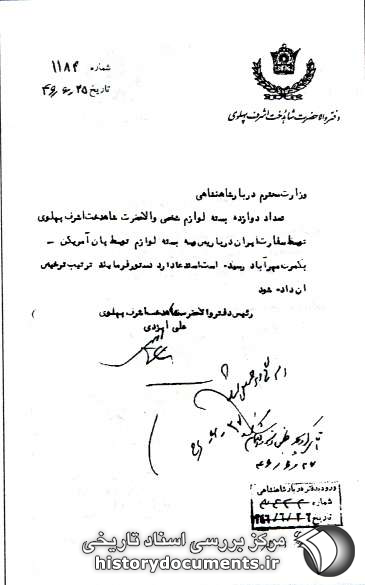 دفتر والاحضرت شاهدخت اشرف پهلوی
شماره ۱۱۸۴
تاریخ ۴۶٫۶٫۲۵
وزارت محترم دربار شاهنشاهی
تعداد دوازده بسته لوازم شخصی والاحضرت شاهدخت اشرف پهلوی
توسط سفارت ایران در پاریس و سه بسته لوازم توسط پان آمریکن –
بگمرک مهرآباد رسیده است استدعا دارد دستور فرمایند ترتیب ترخیص
آن داده شود
رئیس دفتر والاحضرت شاهدخت اشرف پهلوی
علی ایزدی
۴۶٫۶٫۲۷
ورود دفتر دربار شاهنشاهی
شماره
تاریخ
مرکز بررسی اسناد تاریخی
historydocuments.ir